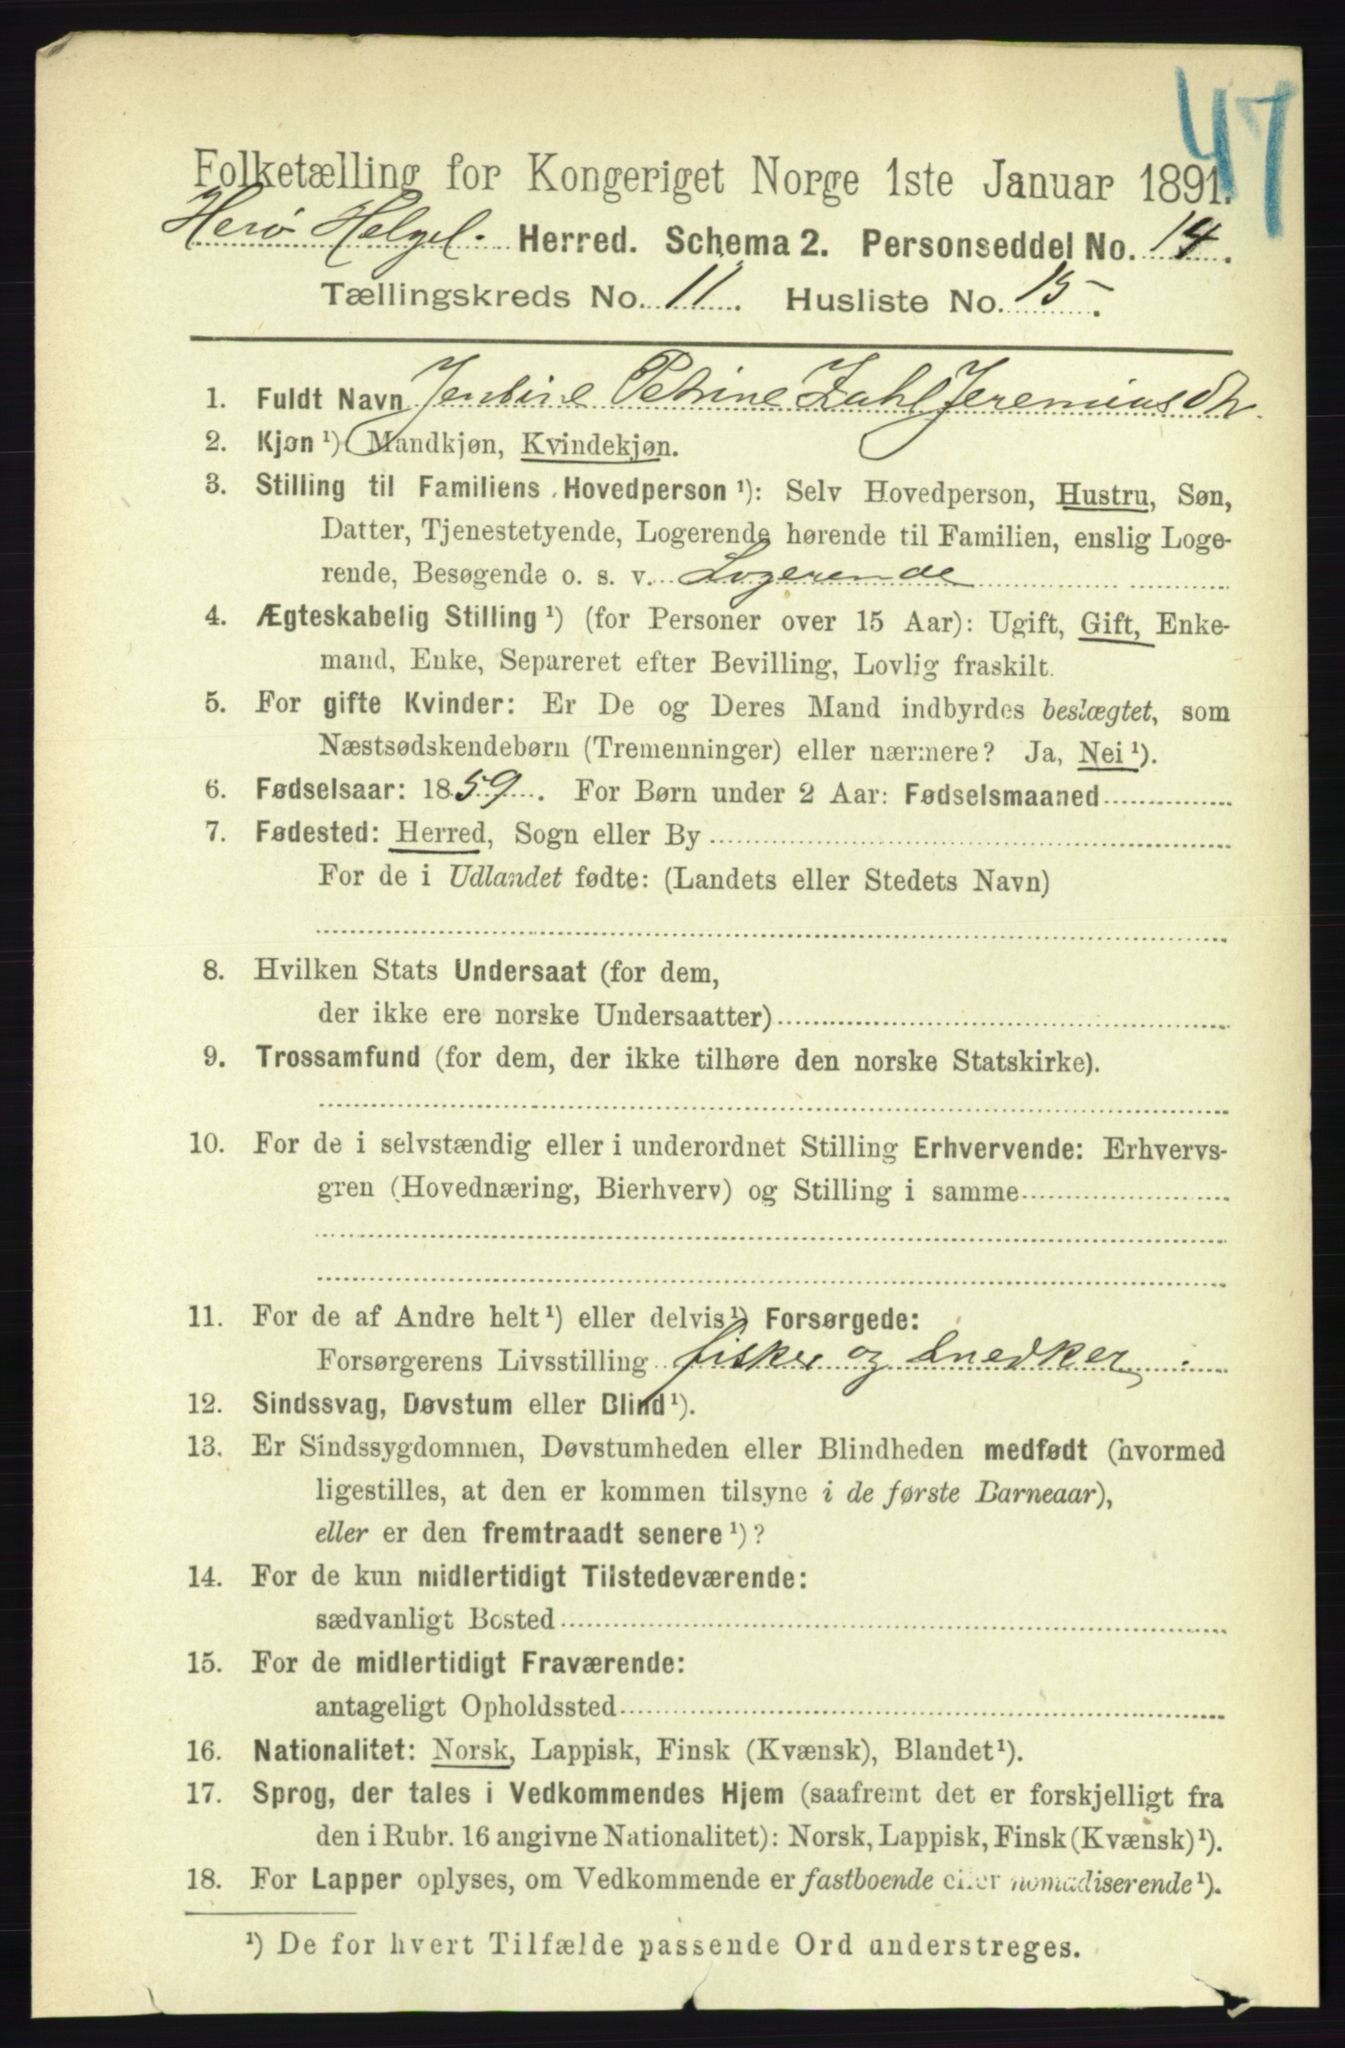 47
Folketælling for Kongeriget Norge 1ste Januar 1891.
Herø Helgel. Herred. Schema 2. Personseddel No. 14.
Tællingskreds No. 11. Husliste No. 15.
1. Fuldt Navn Jentine Petrine Zahl Jeremiasdtr.
2. Kjøn ¹): Mandkjøn, Kvindekjøn.
3. Stilling til Familiens Hovedperson ¹): Selv Hovedperson, Hustru, Søn,
Datter, Tjenestetyende, Logerende hørende til Familien, enslig Loge-
rende, Besøgende o. s. v. Logerende
4. Ægteskabelig Stilling ¹) (for Personer over 15 Aar): Ugift, Gift, Enke-
mand, Enke, Separeret efter Bevilling, Lovlig fraskilt.
5. For gifte Kvinder: Er De og Deres Mand indbyrdes beslægtet, som
Næstsødskendebørn (Tremenninger) eller nærmere? Ja, Nei ¹).
6. Fødselsaar: 1859. For Børn under 2 Aar: Fødselsmaaned
7. Fødested: Herred, Sogn eller By
For de i Udlandet fødte: (Landets eller Stedets Navn)
8. Hvilken Stats Undersaat (for dem,
der ikke ere norske Undersaatter)
9. Trossamfund (for dem, der ikke tilhøre den norske Statskirke).
10. For de i selvstændig eller i underordnet Stilling Erhvervende: Erhvervs-
gren (Hovednæring, Bierhverv) og Stilling i samme
11. For de af Andre helt ¹) eller delvis ¹) Forsørgede:
Forsørgerens Livsstilling fisker og Snedker.
12. Sindssvag, Døvstum eller Blind ¹).
13. Er Sindssygdommen, Døvstumheden eller Blindheden medfødt (hvormed
ligestilles, at den er kommen tilsyne i de første Barneaar),
eller er den fremtraadt senere ¹)?
14. For de kun midlertidigt Tilstedeværende:
sædvanligt Bosted
15. For de midlertidigt Fraværende:
antageligt Opholdssted
16. Nationalitet: Norsk, Lappisk, Finsk (Kvænsk), Blandet ¹).
17. Sprog, der tales i Vedkommendes Hjem (saafremt det er forskjelligt fra
den i Rubr. 16 angivne Nationalitet): Norsk, Lappisk, Finsk (Kvænsk) ¹).
18. For Lapper oplyses, om Vedkommende er fastboende eller nomadiserende ¹).
¹) De for hvert Tilfælde passende Ord understreges.